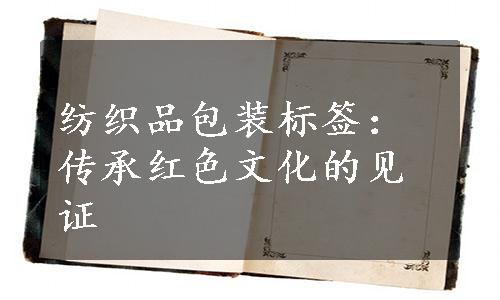 纺织品包装标签：
传承红色文化的见
证